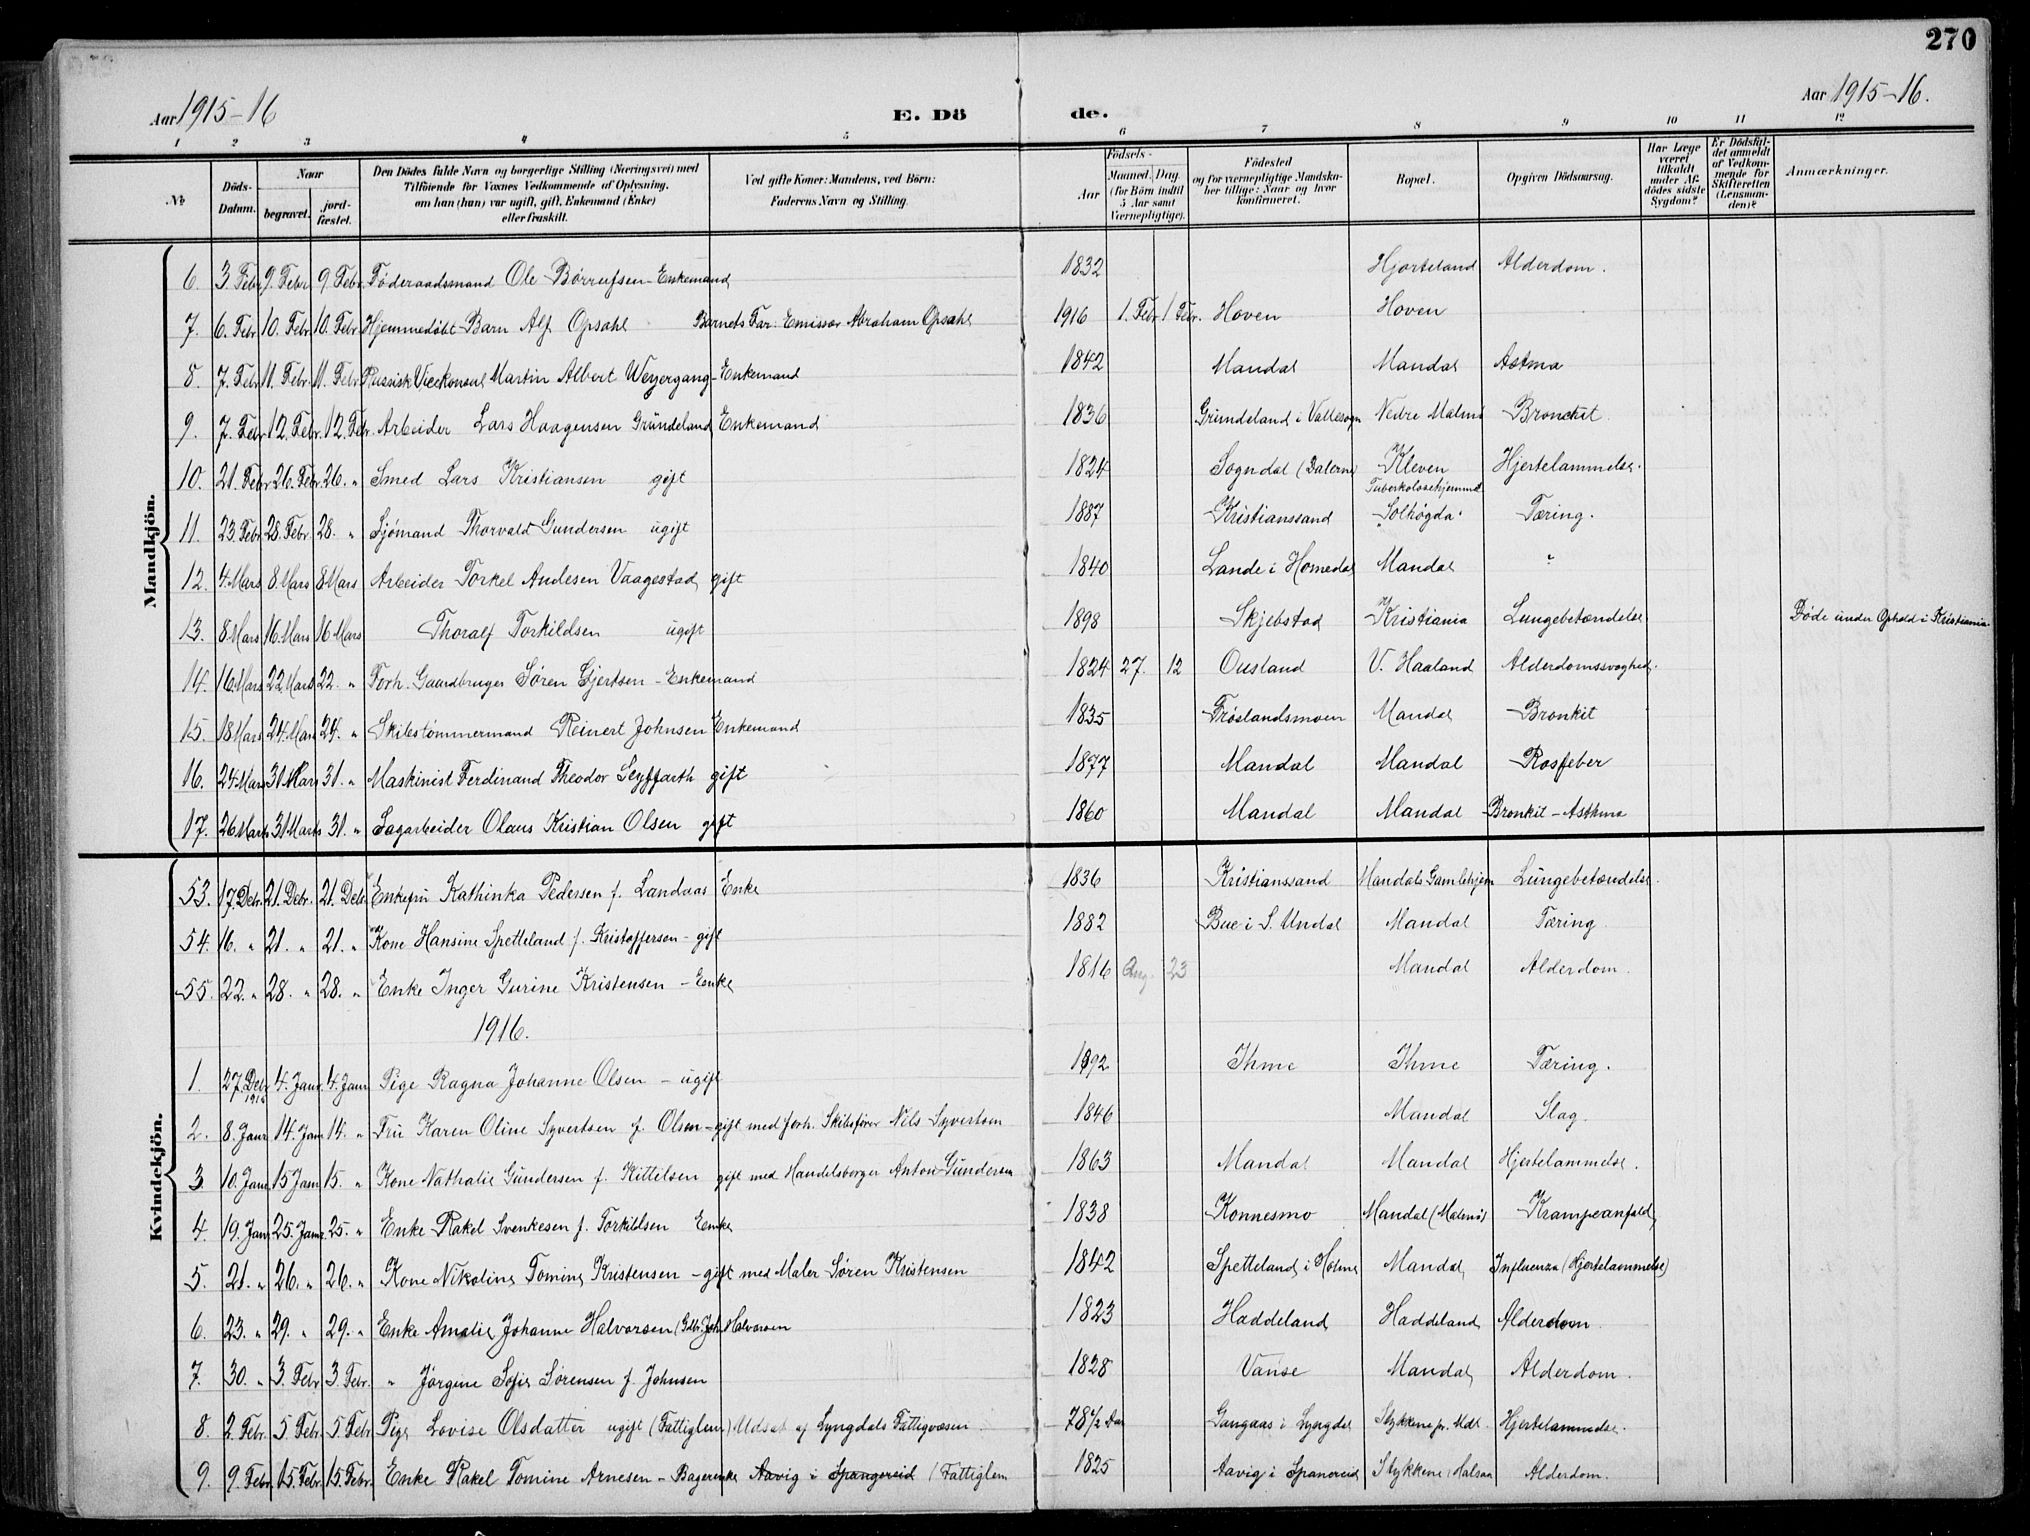 270
Aar 1915-16
E. Dö
de.
Aar 1915-16.
1 2 3 4 5 6 7 8 9 10 11 12
№
Döds-Datum.
Naar
begravet.
jord-fæstet.
Den Dödes fulde Navn og borgerlige Stilling (Næringsvei) med
Tilföiende for Voxnes Vedkommende af Oplysning,
om han (hun) var ugift, gift, Enkemand (Enke)
eller fraskilt.
Ved gifte Koner: Mandens, ved Börn:
Faderens Navn og Stilling.
Födsels-
Aar
Maaned. Dag.
(for Börn indtil
5 Aar samt
Værnepligtige).
Födested
og for værnepligtige Mandska-
ber tillige: Naar og hvor
konfirmeret.
Bopæl.
Opgiven Dödsaarsag.
Har Læge
været
tilkaldt
under Af-
dödes sidste
Sygdom?
Er Dödsfal-
det anmeldt
af Vedkom-
mende for
Skifteretten
(Lensman-
den)?
Anmærkninger.
Mandkjön.
6. 3 Febr 9. Febr 9. Febr. Føderaadsmand Ole Børrufsen - Enkemand 1832 Hjorteland Alderdom.
7. 6. Febr 10. Febr 10. Febr Hjemmedøbt Barn Alf Opsahl Barnets Far: Emissær Abraham Opsahl 1916 1. Febr 1 Febr. Hoven Hoven
8. 7. Febr 11. Febr. 11. Febr Russisk Vicekonsul Martin Albert Weyergang - Enkemand 1842 Mandal Mandal Astma
9. 7. Febr 12. Febr. 12. Febr Arbeider Lars Haagensen Gründeland Enkemand 1836 Gründeland i Vallesogn Nedre Malmø Bronchit.
10. 21. Febr 26. Febr. 26. " Smed Lars Kristiansen gift 1824 Sogndal (Dalerne) Kleven Hjertelammelse.
11. 23. Febr 28. Febr. 28. " Sjömand Thorvald Gundersen ugift 1887 Kristianssand Tuberkolosehjemmet "Solhøgda" Tæring.
12. 4. Mars 8. Mars 8 Mars Arbeider Torkel Andesen Vaagestad gift 1840 Lande i Homedal Mandal "
13. 8. Mars 16. Mars 16 Mars Thoralf Torkildsen ugift 1898 Skjebstad Kristiania Lungebetændelse Døde under Ophold i Kristiania
14. 16. Mars 22 Mars 22. " Forh. Gaardbruger Søren Gjertsen - Enkemand 1824 27. 12 Ousland V. Haaland Alderdomssvaghed.
15. 18 Mars 24. Mars 24. " Skibstömmermand Reinert Johnsen Enkemand 1835 Frøslandsmoen Mandal Bronkit
16. 24. Mars 31. Mars 31. " Maskinist Ferdinand Theodor Seyffarth gift 1877 Mandal Mandal Rosfeber
17. 26 Marts 31 Marts 31. " Sagarbeider Olaus Kristian Olsen gift 1860 Mandal Mandal Bronkit - Asthma
Kvindekjön.
53. 17. Debr. 21. Debr. 21. Debr. Enkefru Kathinka Pedersen f. Landaas Enke 1836 Kristianssand Mandals Gamlehjem Lungebetændelse.
54. 16. " 21. " 21. " Kone Hansine Spetteland f. Kristoffersen - gift 1882 Bue i S. Undal Mandal Tæring
55. 22. " 28. " 28. " Enke Inger Gurine Kristensen - Enke 1816 Aug. 23 Mandal Alderdom.
1916.
1. 27. Debr 1915 4. Janr. 4. Janr Pige Ragna Johanne Olsen - ugift 1892 Ihme Ihme Tæring.
2. 8. Janr 14. Janr 14. " Fru Karen Oline Syvertsen f. Olsen - gift med forh. Skibsfører Nils Syvertsen 1846 Mandal Slag.
3 10. Janr 15 Janr 15. " Kone Nathalie Gundersen f. Kittelsen gift med Handelsborger Anton Gundersen 1863 Mandal Mandal Hjertelammelse.
4. 19. Janr 25. Janr. 25. " Enke Rakel Svenkesen f. Torkildsen Enke 1838 Konnesmo Mandal (Malmø) Krampeanfald
5. 21. " 26. " 26. " Kone Nikoline Tomine Kristensen - gift med Maler Søren Kristensen 1842 Spetteland i Holme Mandal Influenza (Hjertelammelse)
6. 23. " 29. " 29. " Enke Amalie Johanne Halvorsen (Gbr. Joh. Halvorsen 1823 Haddeland Haddeland Alderdom.
7. 30. " 3. Febr 3. Febr. " Jørgine Sofie Sørensen f. Johnsen 1828 Vanse Mandal Alderdom.
8. 2. Febr. 5 Febr. 5. Febr Pige Lovise Olsdatter ugift (Fattiglem) Udsat af Lyngdals Fattigvæsen 78 1/2 Aar Gangaas i Lyngdal Stykkene pr. Mdl. Hjertelammelse.
9. 9. Febr. 15. Febr 15. Febr. Enke Rakel Tomine Arnesen - Bagerenke Aavig i Spangereid (Fattiglem 1825 Aavig i Spanereid Stykkene i Halsaa Alderdom.